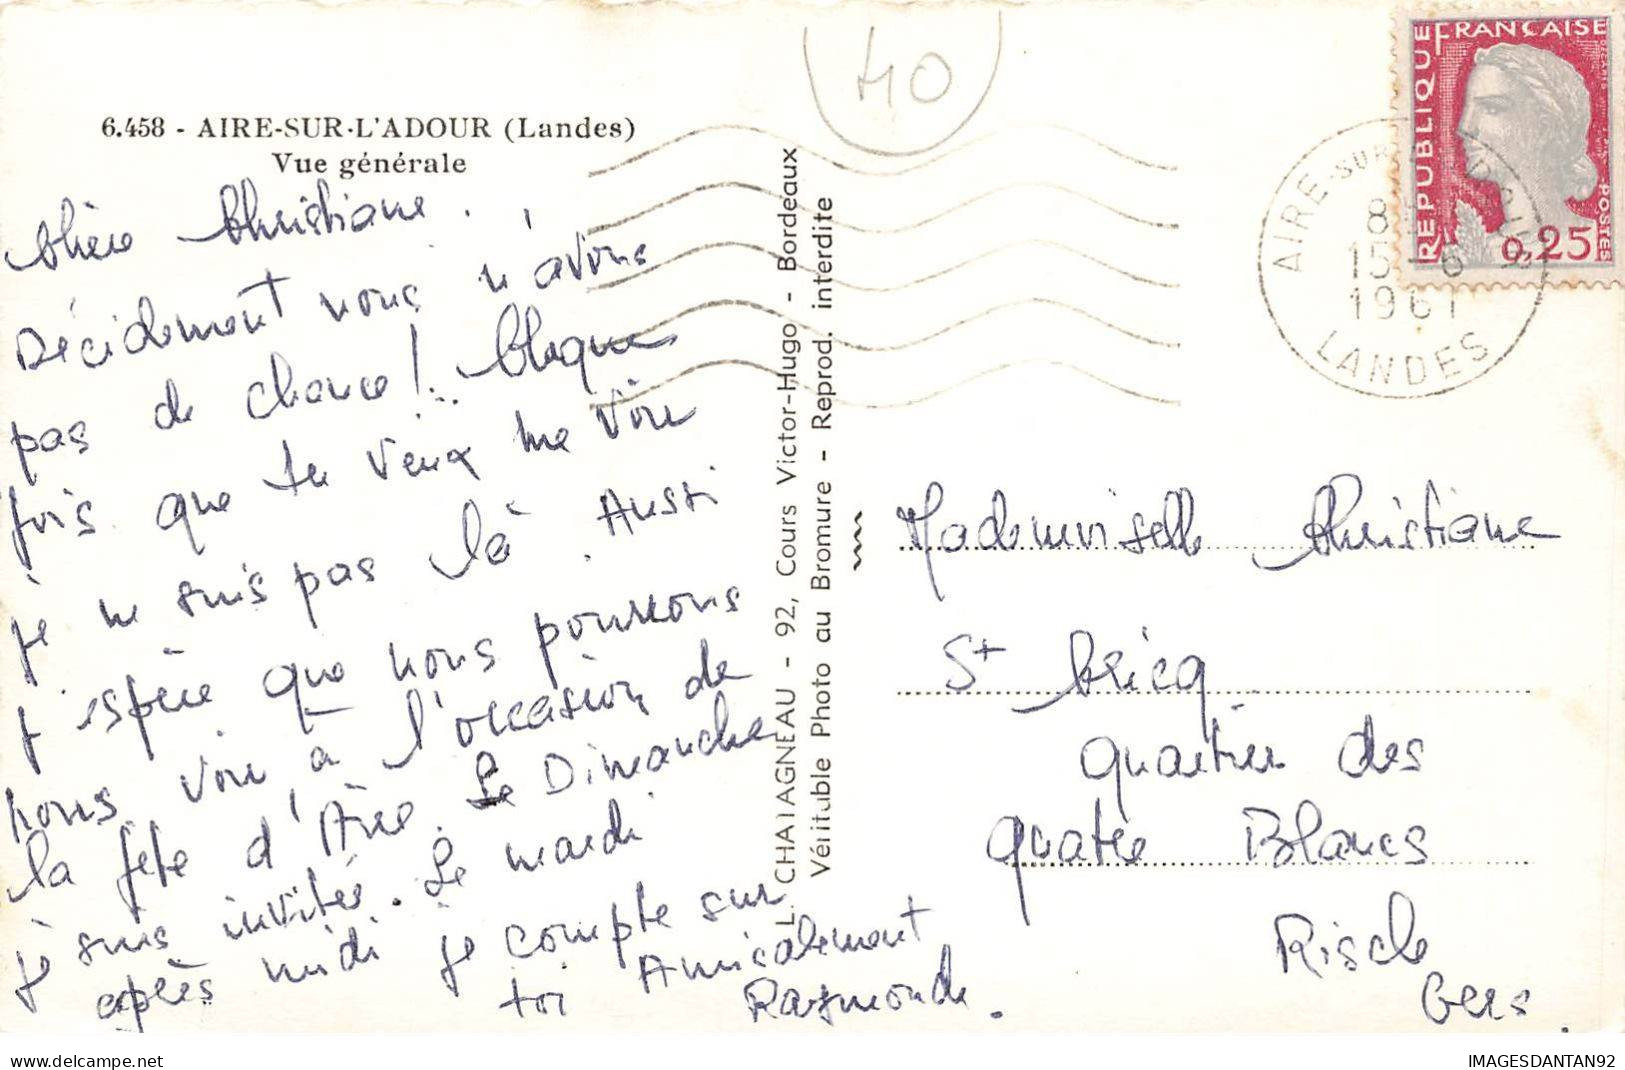 6.458 - AIRE-SUR-L'ADOUR (Landes)
Vue générale
Chère Christiane.
Décidement nous n'avons
pas de chance! Chaque
fois que tu veux me voir
je ne suis pas là. Aussi
j'espère que nous pourrons
nous voir à l'occasion de
la fête d'Aire. Le Dimanche
je suis invitée. Le mardi
après midi je compte sur
toi Amicalement
Raymonde.
L. CHATAGNEAU - 92, Cours Victor-Hugo - Bordeaux
Véritable Photo au Bromure - Reprod. interdite
40
REPUBLIQUE FRANÇAISE
POSTES
0,25
AIRE-SUR-L'ADOUR
8
15-6
1961
LANDES
Mademoiselle Christiane
St Gricq
Quartier des
Quatre Blancs
Riscle
Gers.
IMAGESDANTAN92